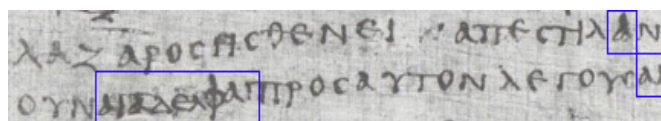 ΛΑΖΑΡΟCΗCΘΕΝΕΙ : ΑΠΕCΤΙΛΑΝ
ΟΥΝΑΙΑΔΕΛΦΑΙΠΡΟCΑΥΤΟΝΛΕΓΟΥCΑΙ